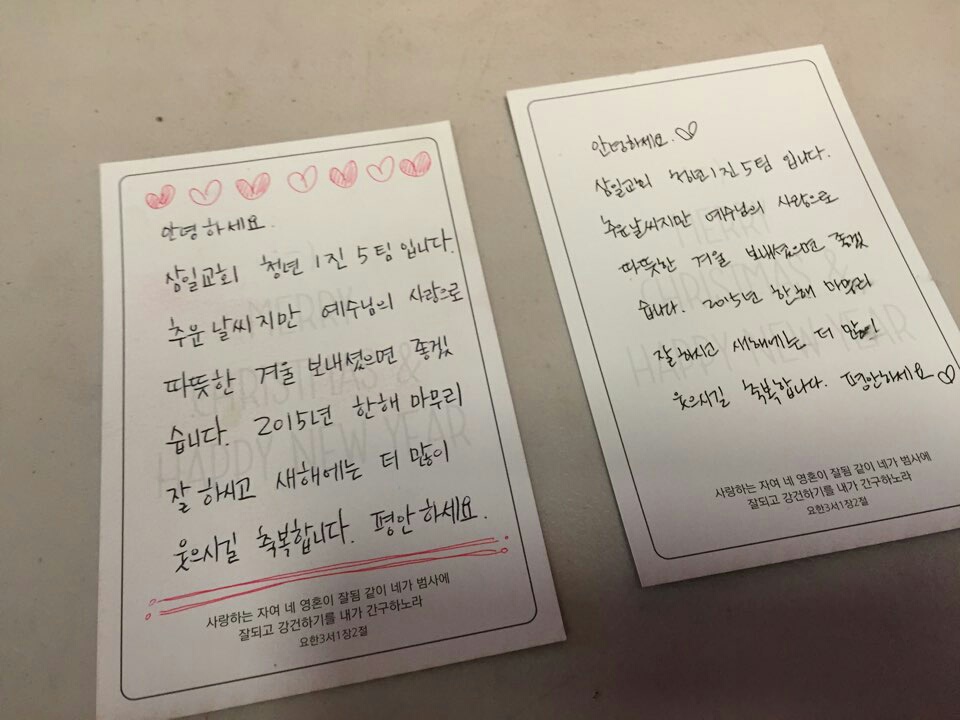 안녕하세요.
상일교회 청년 1진 5팀 입니다.
추운 날씨지만 예수님의 사랑으로
따뜻한 겨울 보내셨으면 좋겠
습니다. 2015년 한해 마무리
잘 하시고 새해에는 더 많이
웃으시길 축복합니다. 평안하세요.
MERRY
CHRISTMAS &
HAPPY NEW YEAR
사랑하는 자여 네 영혼이 잘됨 같이 네가 범사에
잘되고 강건하기를 내가 간구하노라
요한3서1장2절
안녕하세요.
상일교회 청년1진 5팀 입니다.
추운날씨지만 예수님의 사랑으로
따뜻한 겨울 보내셨으면 좋겠
습니다. 2015년 한해 마무리
잘하시고 새해에는 더 많이
웃으시길 축복합니다. 평안하세요
MERRY
CHRISTMAS &
HAPPY NEW YEAR
사랑하는 자여 네 영혼이 잘됨 같이 네가 범사에
잘되고 강건하기를 내가 간구하노라
요한3서1장2절